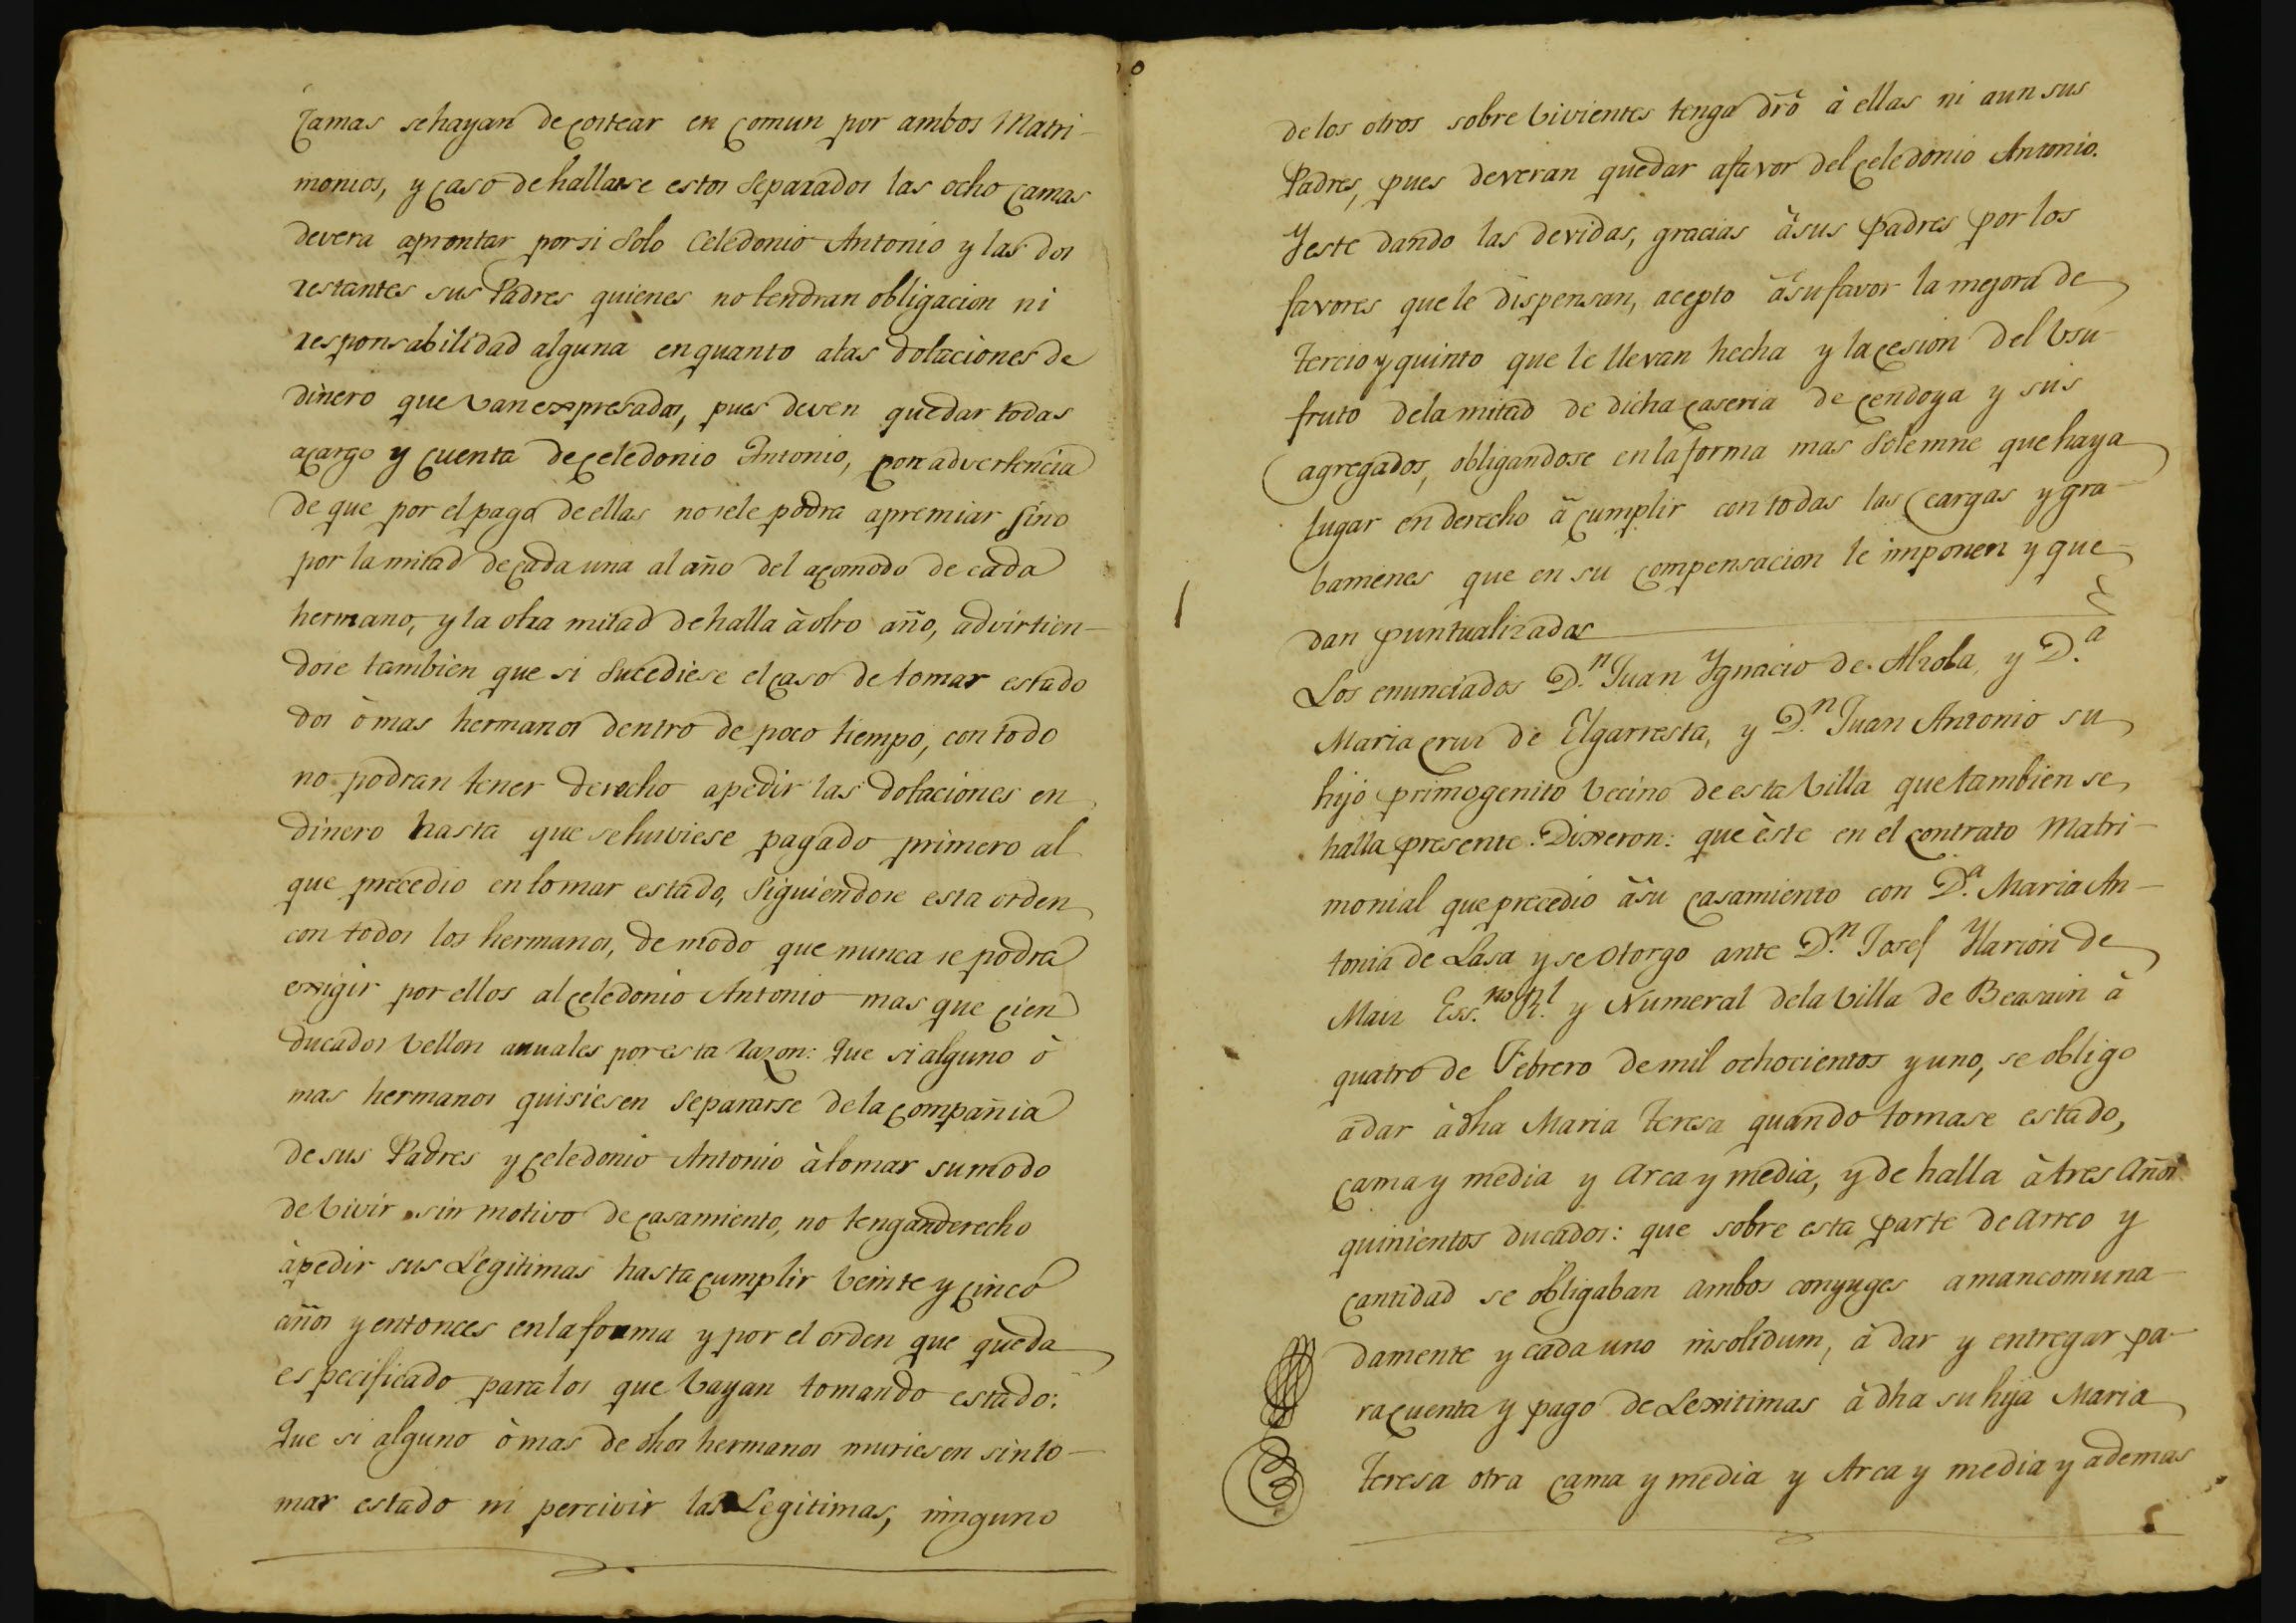 camas se hayan de costear en comun por ambos Matri-
monios, y caso de hallarse estos separados las ocho camas
devera aprontar por si solo Celedonio Antonio y las dos
restantes sus Padres quienes no tendran obligacion ni
responsabilidad alguna en quanto a las dotaciones de
dinero que van expresadas, pues deven quedar todas
a cargo y cuenta de Celedonio Antonio, con advertencia
de que por el pago de ellas no se le podra apremiar sino
por la mitad de cada una al año del acomodo de cada
hermano, y la otra mitad de halla à otro año, advirtien-
dose tambien que si sucediese el caso de tomar estado
dos ò mas hermanos dentro de poco tiempo, con todo
no podran tener derecho a pedir las dotaciones en
dinero hasta que se huviese pagado primero al
que precedio en tomar estado, siguiendose esta orden
con todos los hermanos, de modo que nunca se podra
exigir por ellos al Celedonio Antonio mas que cien
ducados vellon anuales por esta razon: Que si alguno ò
mas hermanos quisiesen separarse de la compañia
de sus Padres y Celedonio Antonio à tomar su modo
de vivir sin motivo de casamiento, no tengan derecho
à pedir sus Legitimas hasta cumplir veinte y cinco
años y entonces en la forma y por el orden que queda
especificado para los que vayan tomando estado:
Que si alguno ò mas de dhos hermanos muriesen sin to-
mar estado ni percivir las Legitimas, ninguno
de los otros sobre vivientes tenga dro à ellas ni aun sus
Padres, pues deveran quedar a favor del Celedonio Antonio.
Y este dando las devidas, gracias à sus Padres por los
favores que le dispensan, acepto à su favor la mejora de
tercio y quinto que le llevan hecha y la cesion del Usu-
fruto de la mitad de dicha caseria de Cendoya y sus
agregados, obligandose en la forma mas solemne que haya
lugar en derecho à cumplir con todas las cargas y gra-
bamenes que en su compensacion le imponen y que-
dan puntualizadas
Los enunciados D.n Juan Ygnacio de Alzola, y D.a
Maria Cruz de Elgarresta, y D.n Juan Antonio su
hijo primogenito vecino de esta Villa que tambien se
halla presente. Dixeron: que èste en el contrato Matri-
monial que precedio à su casamiento con D.a Maria An-
tonia de Lasa y se otorgo ante D.n Josef Ylarion de
Maiz Ess.no R.l y Numeral de la Villa de Beasain à
quatro de Febrero de mil ochocientos y uno, se obligo
a dar à dha Maria Teresa quando tomase estado,
cama y media y Arca y media, y de halla à tres años
quinientos ducados: que sobre esta parte de arreo y
cantidad se obligaban ambos conyuges amancomuna-
damente y cada uno insolidum, à dar y entregar pa-
ra cuenta y pago de Lexitimas à dha su hija Maria
Teresa otra cama y media y Arca y media y ademas